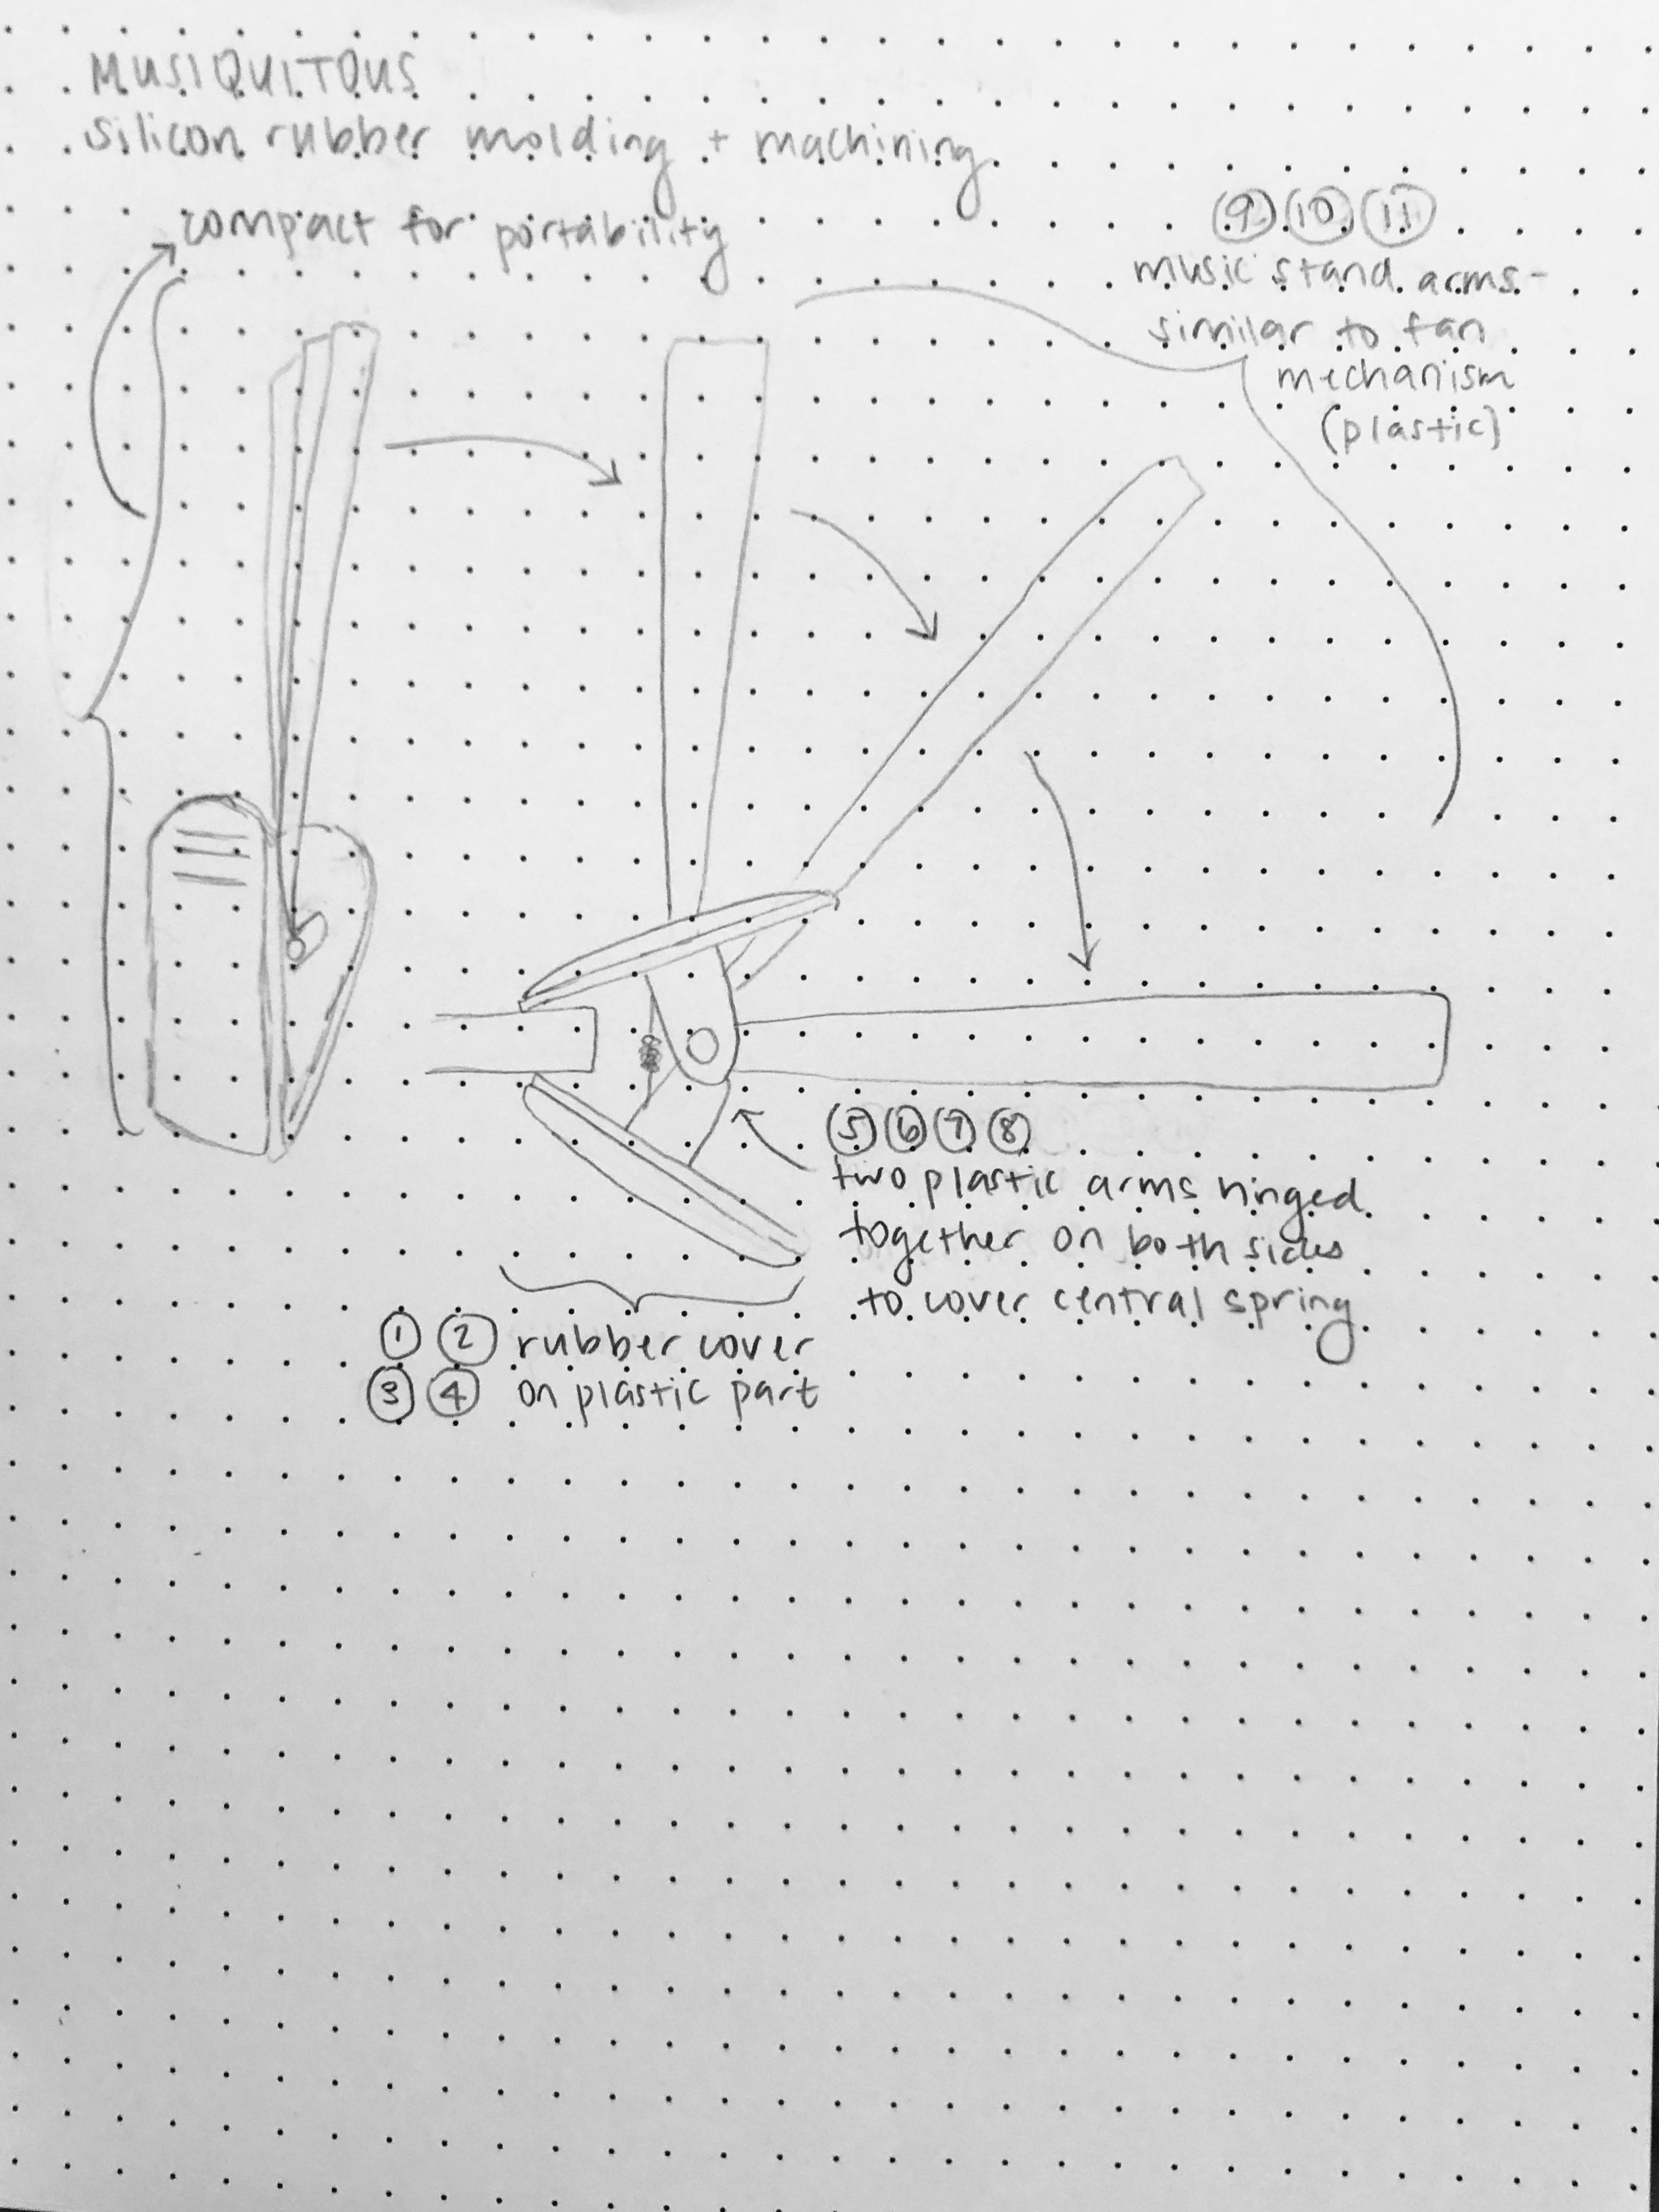 MUSIQUITOUS
silicon rubber molding + machining
compact for portability
9 10 11
music stand arms-
similar to fan
mechanism
(plastic)
5 6 7 8
two plastic arms hinged
together on both sides
to cover central spring
1 2 rubber cover
3 4 on plastic part